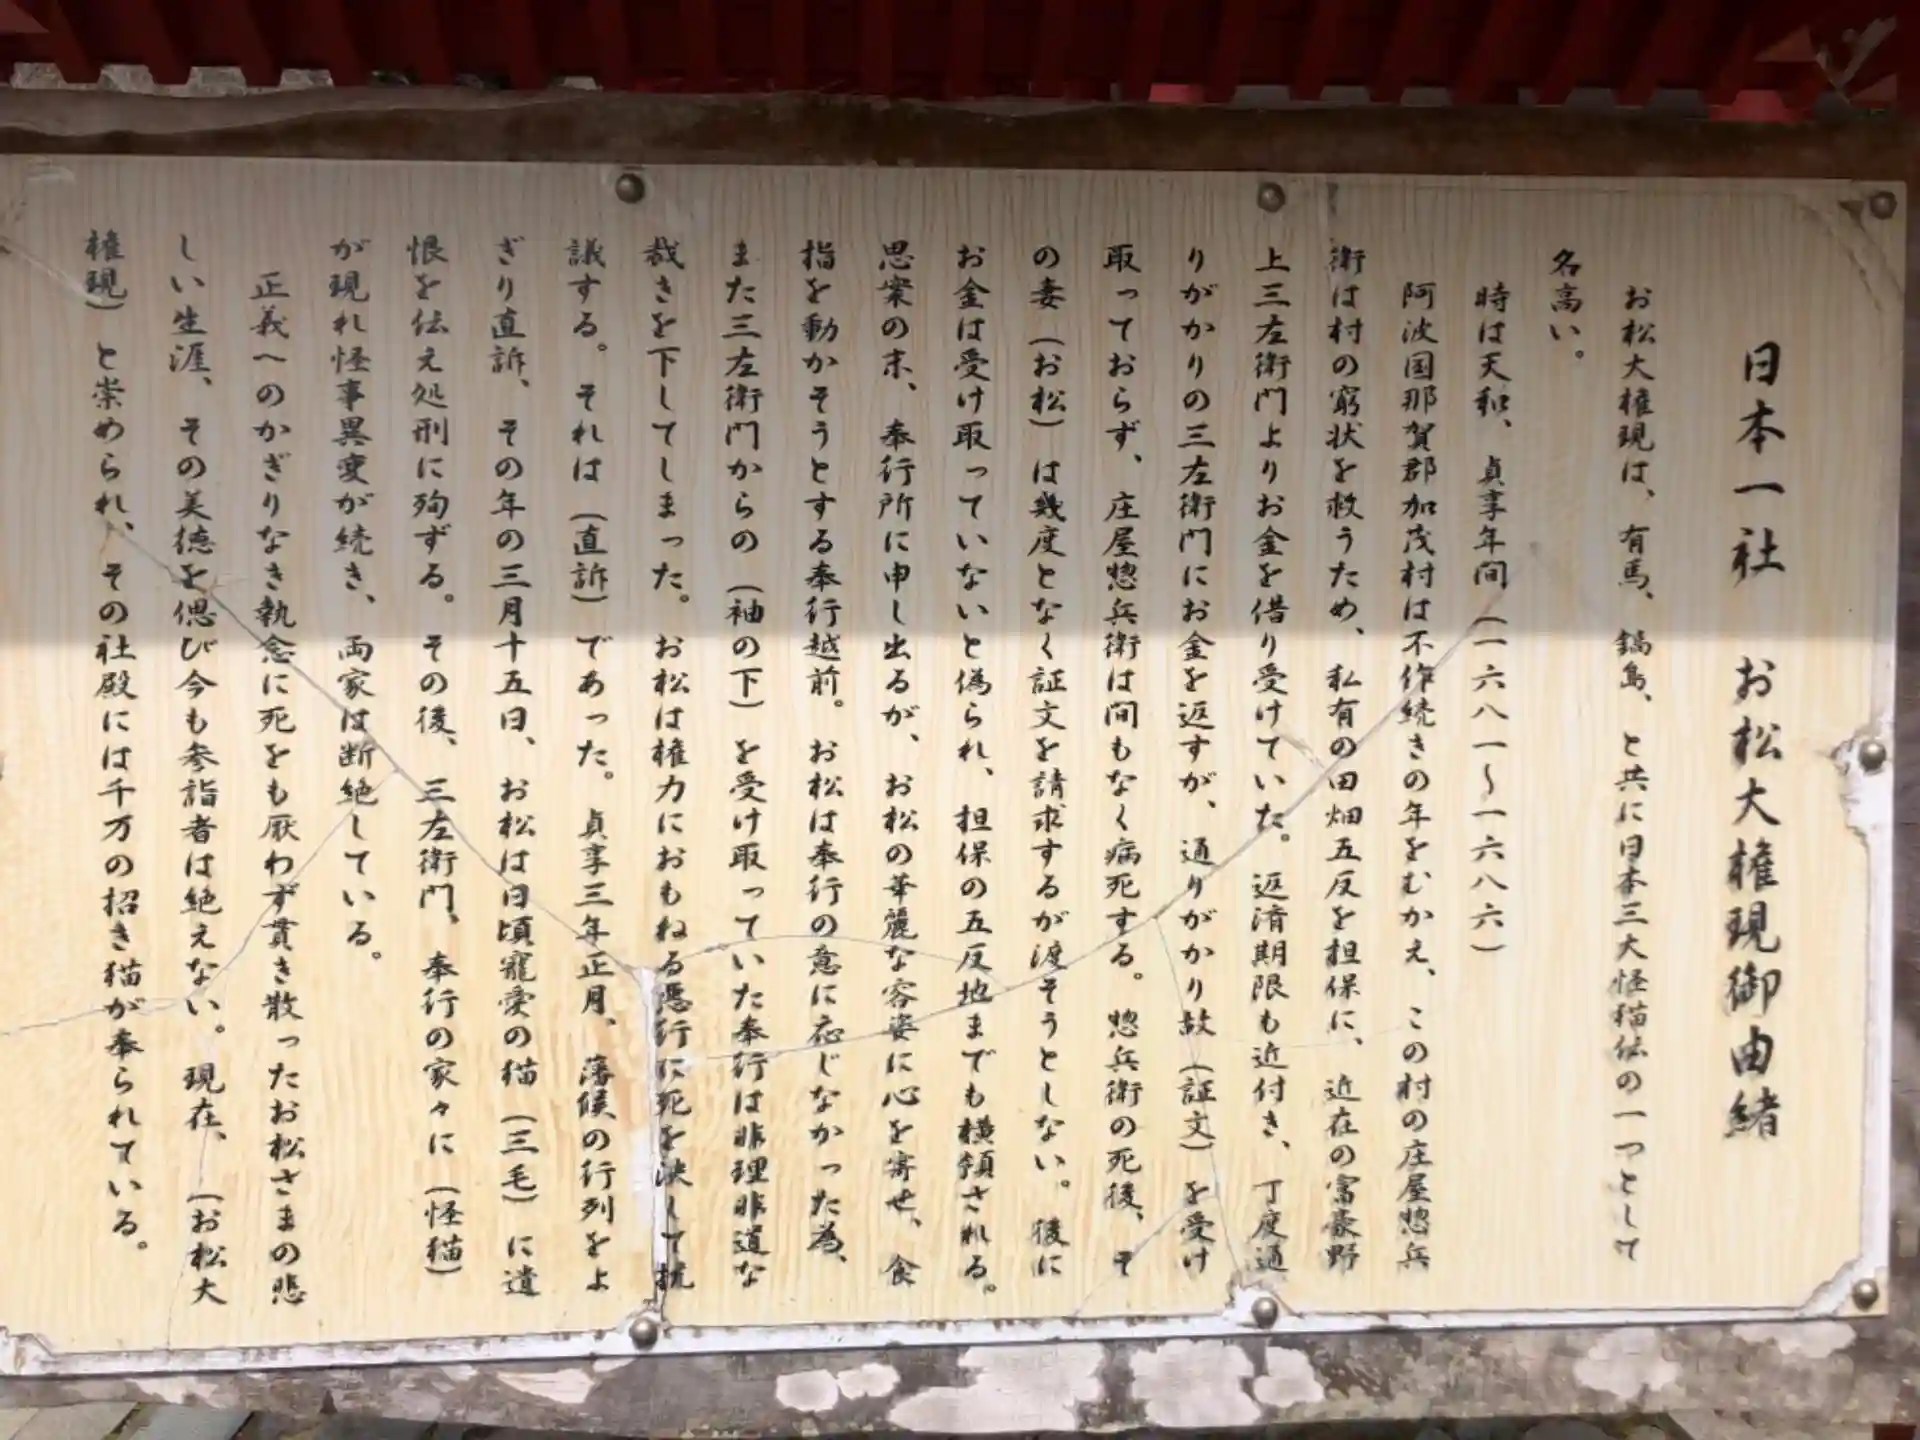 日本一社 お松大権現御由緒
お松大権現は、有馬、鍋島、と共に日本三大怪猫伝の一つとして
名高い。
時は天和、貞享年間(一六八一〜一六八六)
阿波国那賀郡加茂村は不作続きの年をむかえ、この村の庄屋惣兵
衛は村の窮状を救うため、私有の田畑五反を担保に、近在の富豪野
上三左衛門よりお金を借り受けていた。返済期限も近付き、丁度通
りがかりの三左衛門にお金を返すが、通りがかり故(証文)を受け
取っておらず、庄屋惣兵衛は間もなく病死する。惣兵衛の死後、そ
の妻(お松)は幾度となく証文を請求するが渡そうとしない。後に
お金は受け取っていないと偽られ、担保の五反地までも横領される。
思案の末、奉行所に申し出るが、お松の華麗な容姿に心を寄せ、食
指を動かそうとする奉行越前。お松は奉行の意に応じなかった為、
また三左衛門からの(袖の下)を受け取っていた奉行は非理非道な
裁きを下してしまった。お松は権力におもねる悪行に死を決して抗
議する。それは(直訴)であった。貞享三年正月、藩候の行列をよ
ぎり直訴、その年の三月十五日、お松は日頃寵愛の猫(三毛)に遺
恨を伝え処刑に殉ずる。その後、三左衛門、奉行の家々に(怪猫)
が現れ怪事異変が続き、両家は断絶している。
正義へのかぎりなき執念に死をも厭わず貫き散ったお松さまの悲
しい生涯、その美徳を偲び今も参詣者は絶えない。現在、(お松大
権現)と崇められ、その社殿には千万の招き猫が奉られている。